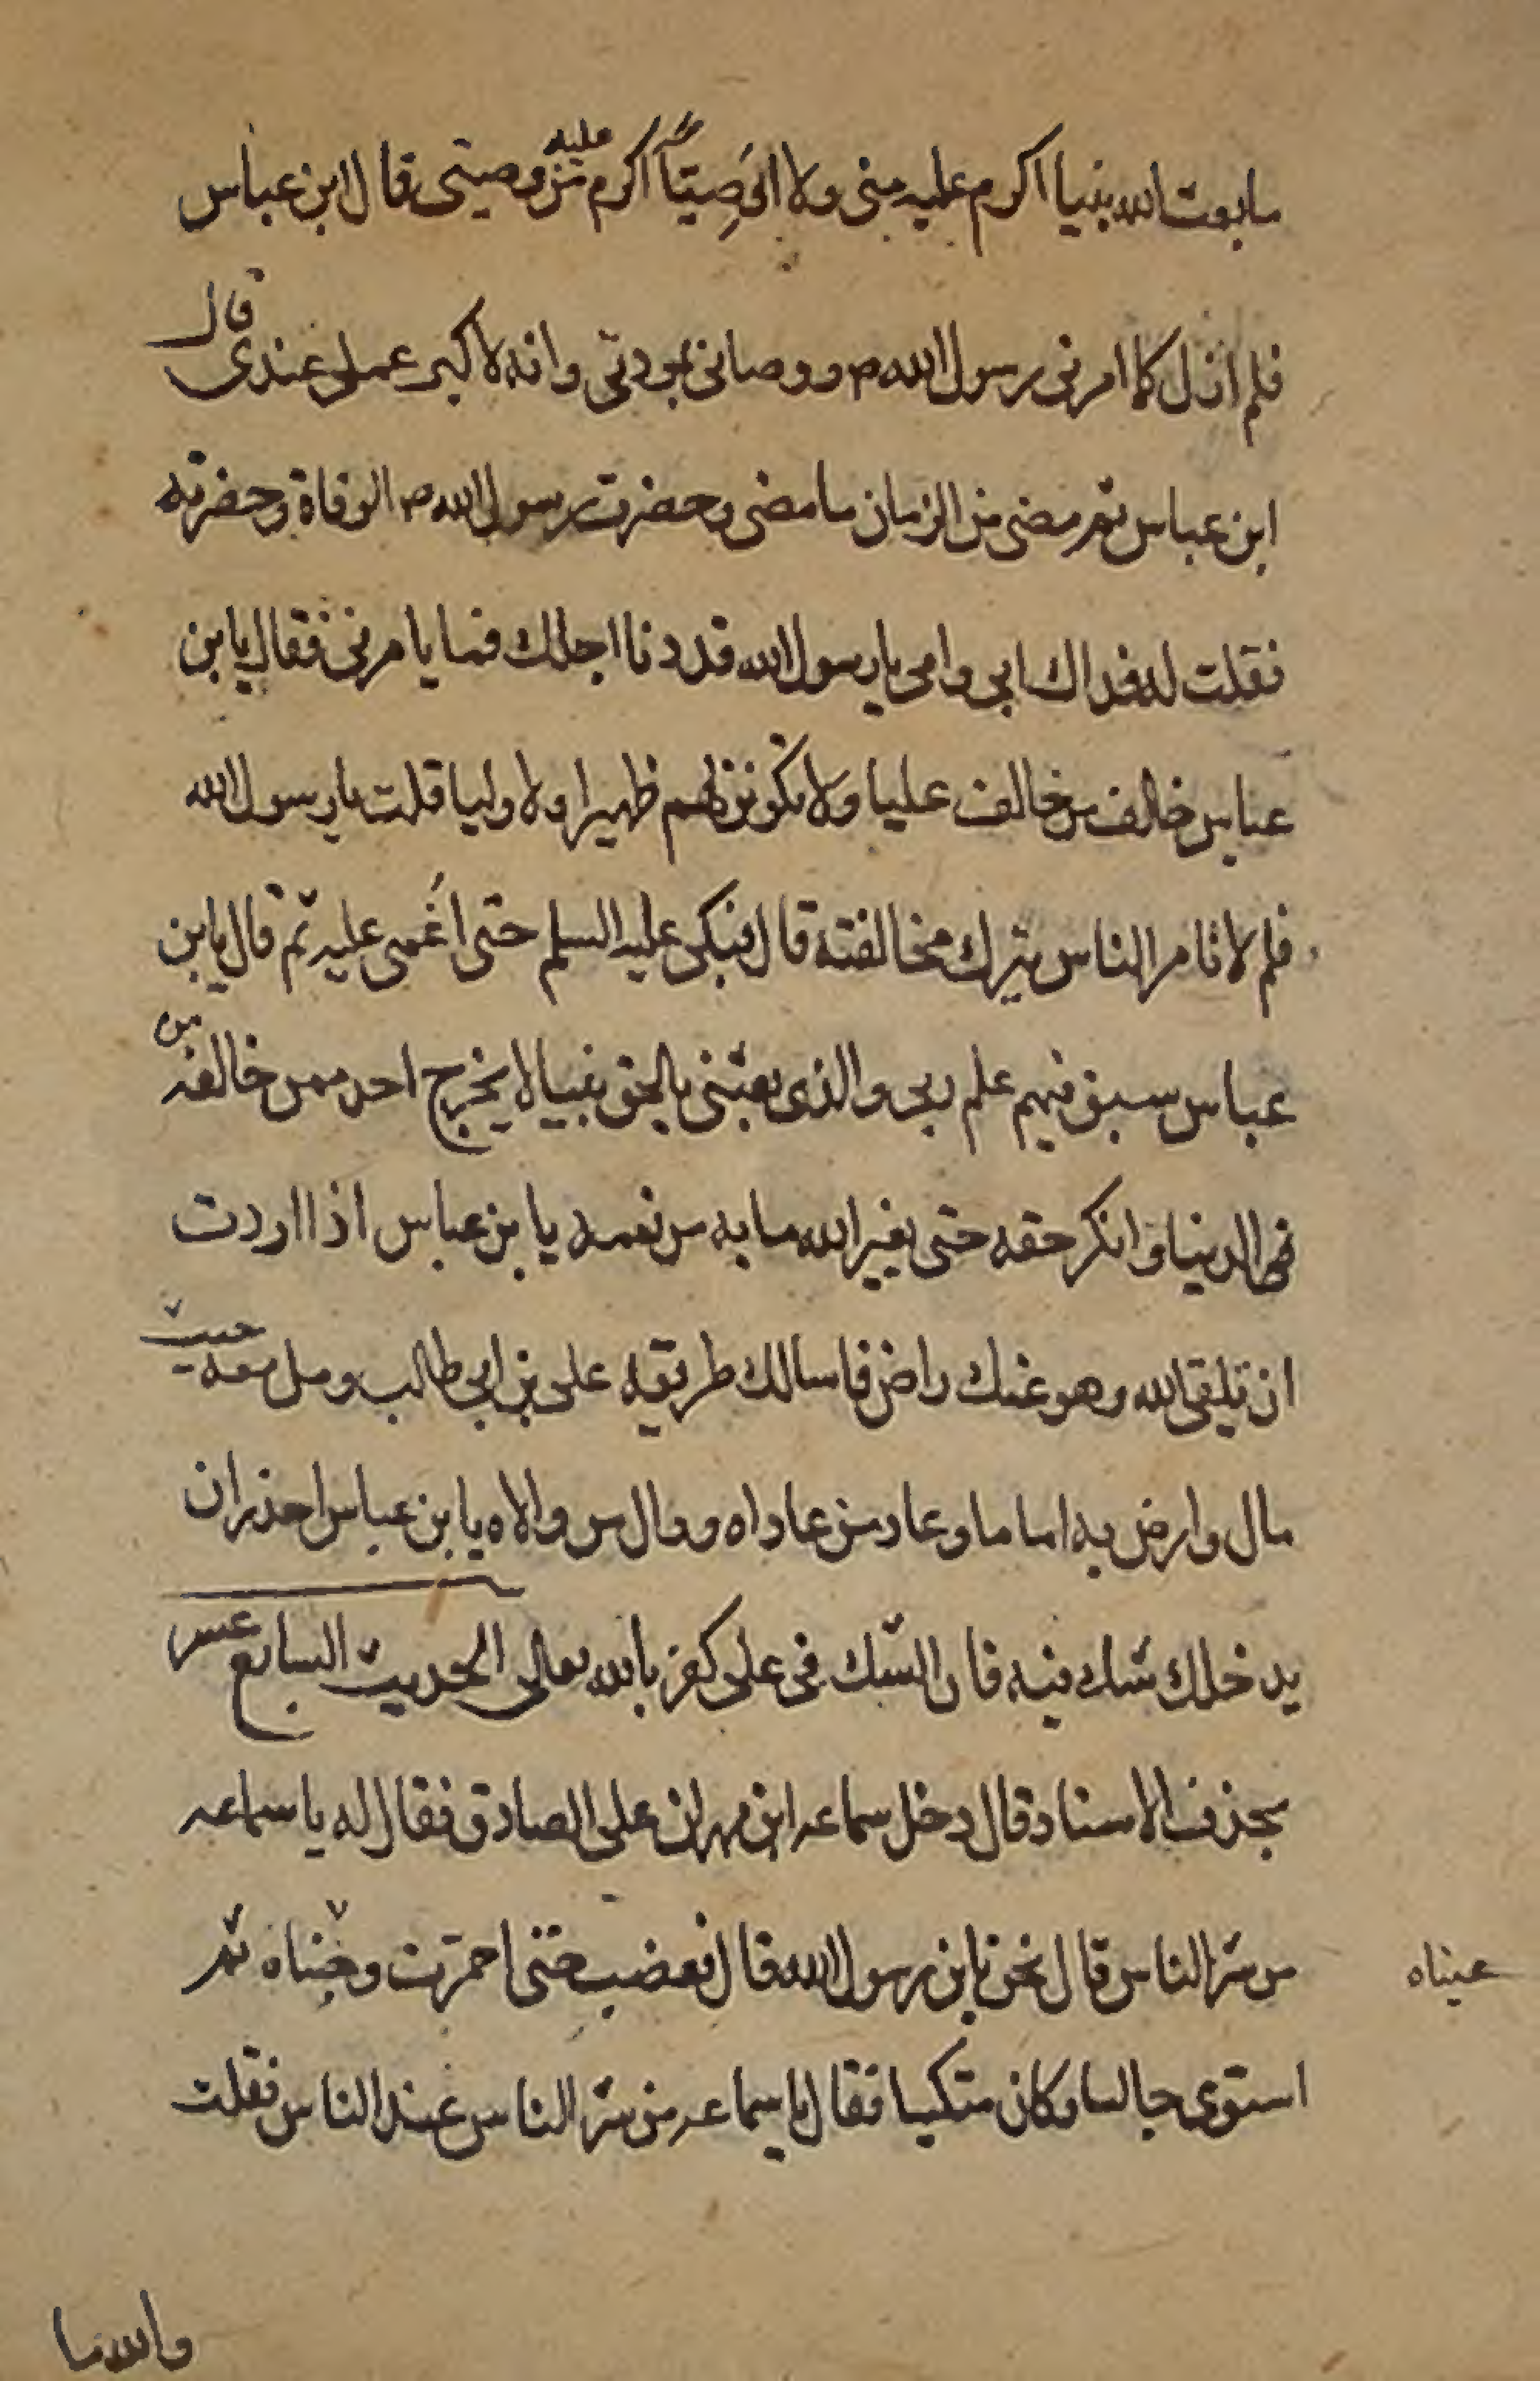 ما بعث الله نبيا اكرم عليه منى ولا وَصِيّاً اكرم عليه من وصيتى قال ابن عباس
فلم ازل كما امرنى رسول الله ص ووصانى بمودتى وانه لاكبر عملى عندى قال
ابن عباس ثم مضى من الزمان ما مضى وحضرت رسول الله ص الوفاة وحضرته
فقلت له فداك ابى وامى يا رسول الله قد دنا اجلك فما يا مرنى فقال يا بن
عباس خالف من خالف عليا ولا تكونن لهم ظهيرا ولا وليا قلت يا رسول الله
فلم لا تامر الناس بترك مخالفته قال فبكى عليه السلم حتى اُغمى عليه ثم قال يا بن
عباس سبق فيهم علم ربى والذى بعثنى بالحق نبيا لا يخرج احد ممن خالفه من
فى الدنيا وانكر حقه حتى يغير الله ما به من نعمه يا بن عباس اذا اردت
ان تلقى الله وهو عنك راض فاسالك طريقه على بن ابى طالب ومل معه حيث
مال وارض به اماما وعاد من عاداه ووال من والاه يا بن عباس احذر ان
يدخلك شك فيه فان الشّك فى على كفر بالله تعالى الحديث السابع عشر
بحذف الاسناد قال دخل سماعه ابن مهران على الصادق فقال له يا سماعه
من شرّ الناس قال نحن يا بن رسول الله قال فغضب حتى احمرّت وجنتاه ثم
عيناه
استوى جالسا وكان متكيا فقال يا سماعه من شرّ الناس عند الناس فقلت
والله ما